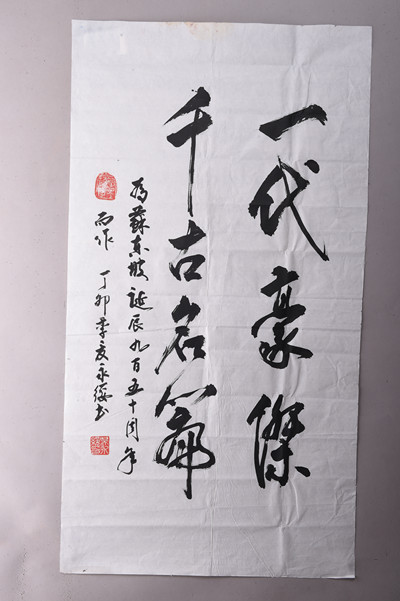 一代豪傑
千古名篇
為蘇東坡誕辰九百五十周年
而作 丁卯季夏永绥书